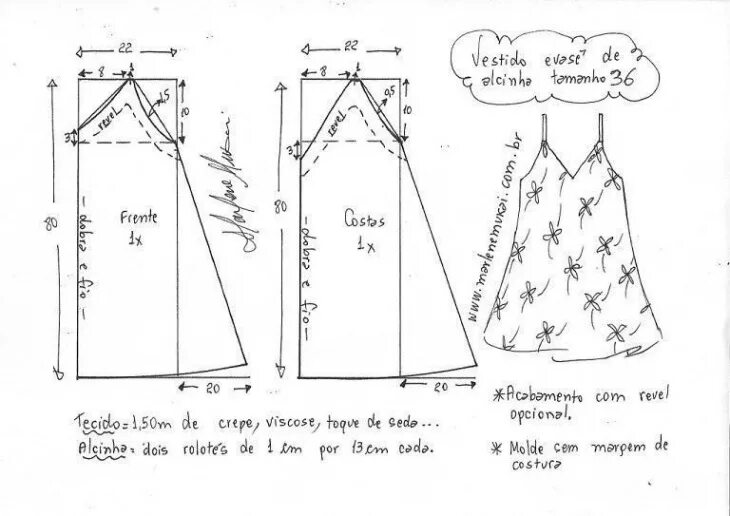 Vestido evasê de
alcinha tamanho 36
22
8
1
1,5
10
3
revel
80
Frente
1x
dobra e fio
20
Marlene Mukai
22
8
1
0,5
10
3
revel
80
Costas
1x
dobra e fio
20
www.marlenemukai.com.br
Tecido=1,50m de crepe, viscose, toque de seda...
Alcinha= dois rolotês de 1 cm por 13 cm cada.
*Acabamento com revel
opcional.
* Molde sem margem de
costura